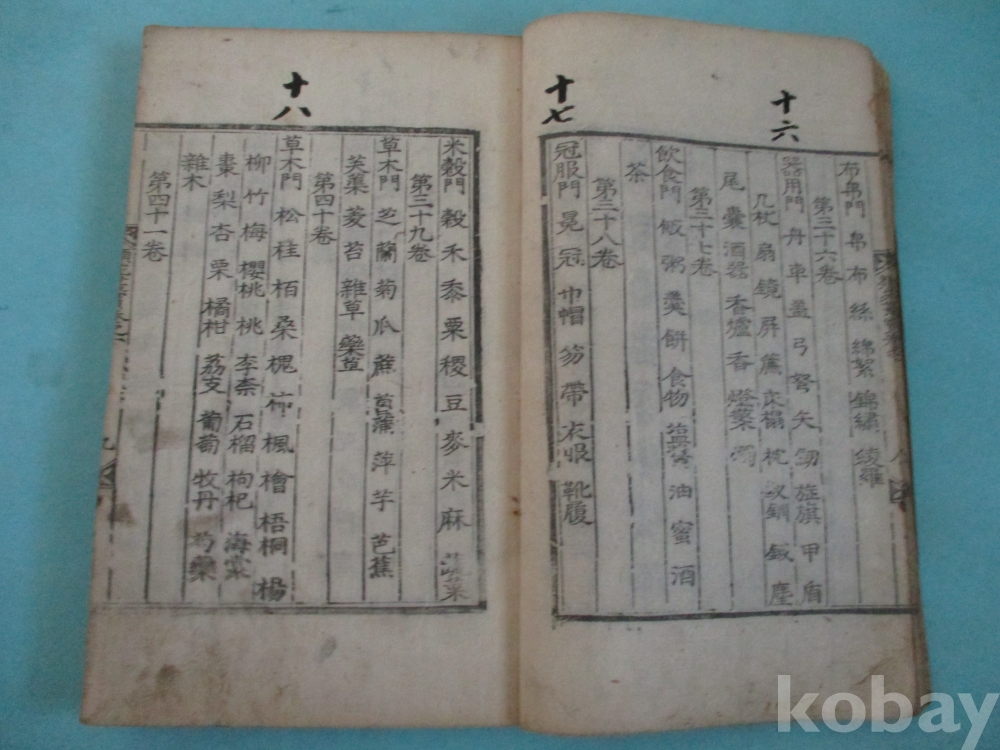 十六
十七
布帛門 帛 布 絲 綿絮 錦繡 綾羅
第三十六卷
器用門 丹 車 蓋 弓 弩 矢 劒 旌旗 甲 盾
几杖 扇 鏡 屛 簾 床榻 枕 釵釧 鍼 塵
尾 囊 酒器 香爐 香 燈 燭
第三十七卷
飮食門 飯 粥 羹 餅 食物 油 蜜 酒
茶
第三十八卷
冠服門 冕 冠 巾帽 笏 帶 衣 靴履
十八
米穀門 穀 禾 黍 粟 稷 豆 麥 米 麻 蔬菜
第三十九卷
草木門 芝 蘭 菊 瓜 蔗 菖蒲 萍 芋 芭蕉
芙蕖 菱 苔 雜草 藥
第四十卷
草木門 松 柱 栢 桑 槐 柿 楓 檜 梧桐 楊
柳 竹 梅 櫻桃 桃 李柰 石榴 枸杞 海棠
棗 梨 杏 栗 橘柑 荔支 葡萄 牧丹 芍藥
雜木
第四十一卷
kobay